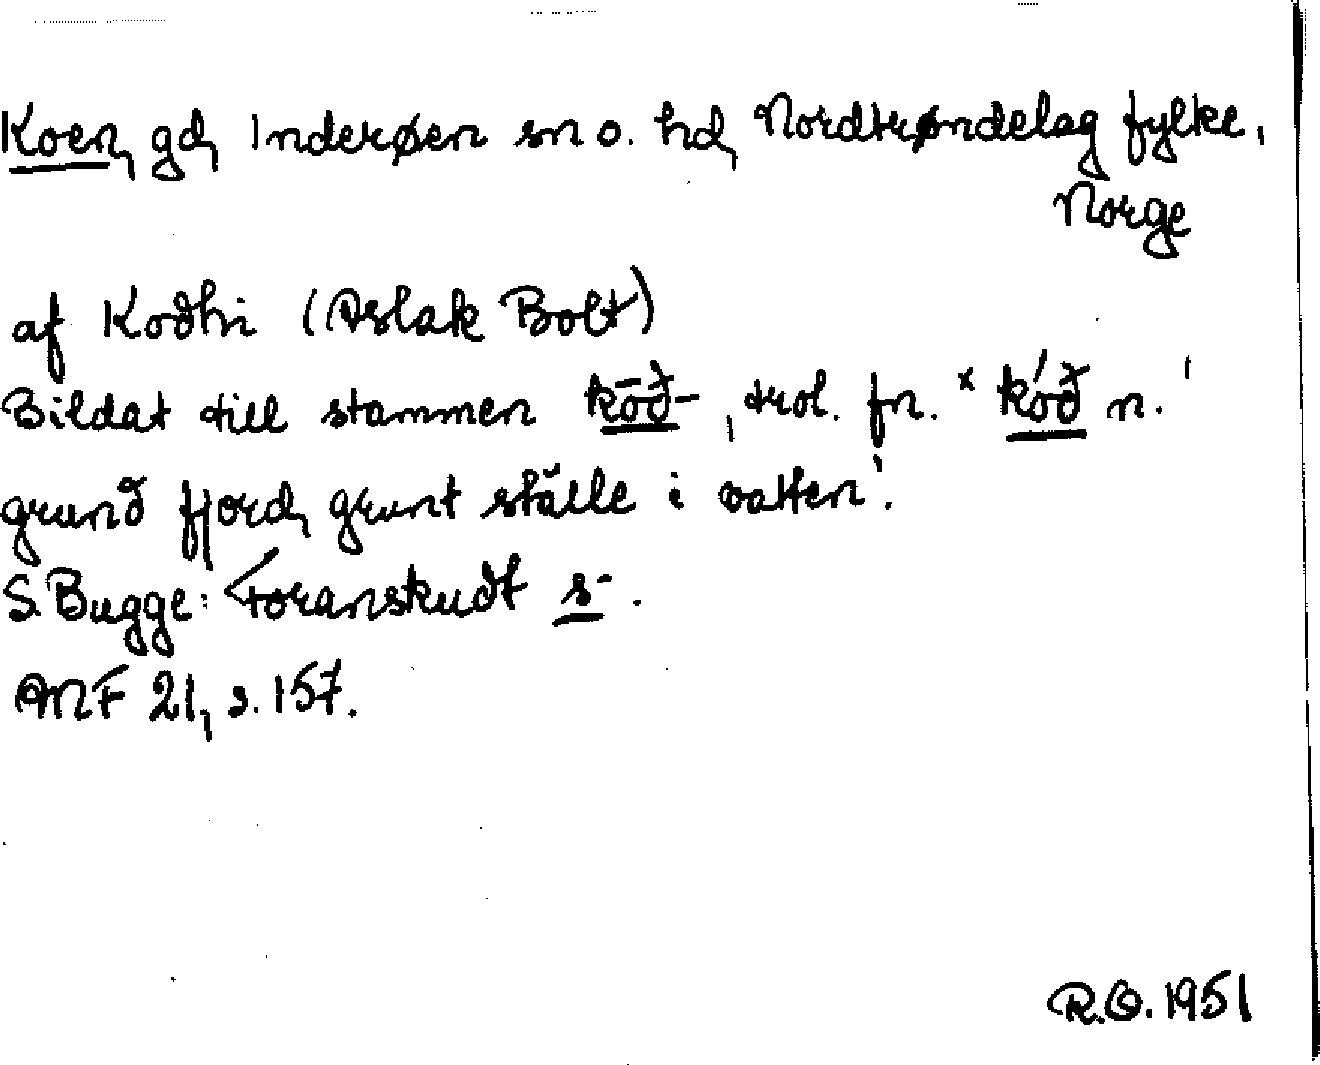 Koen, gd, Inderøen sn o. hd, Nordtrøndelag fylke,
Norge
af Koðhi (Aslak Bolt)
Bildat till stammen kōð-, trol. fn. *kóð n. '
grund fjord, grunt ställe i vatten'.
S. Bugge: Foranskudt s-.
ANF 21, s. 157.
R.O. 1951